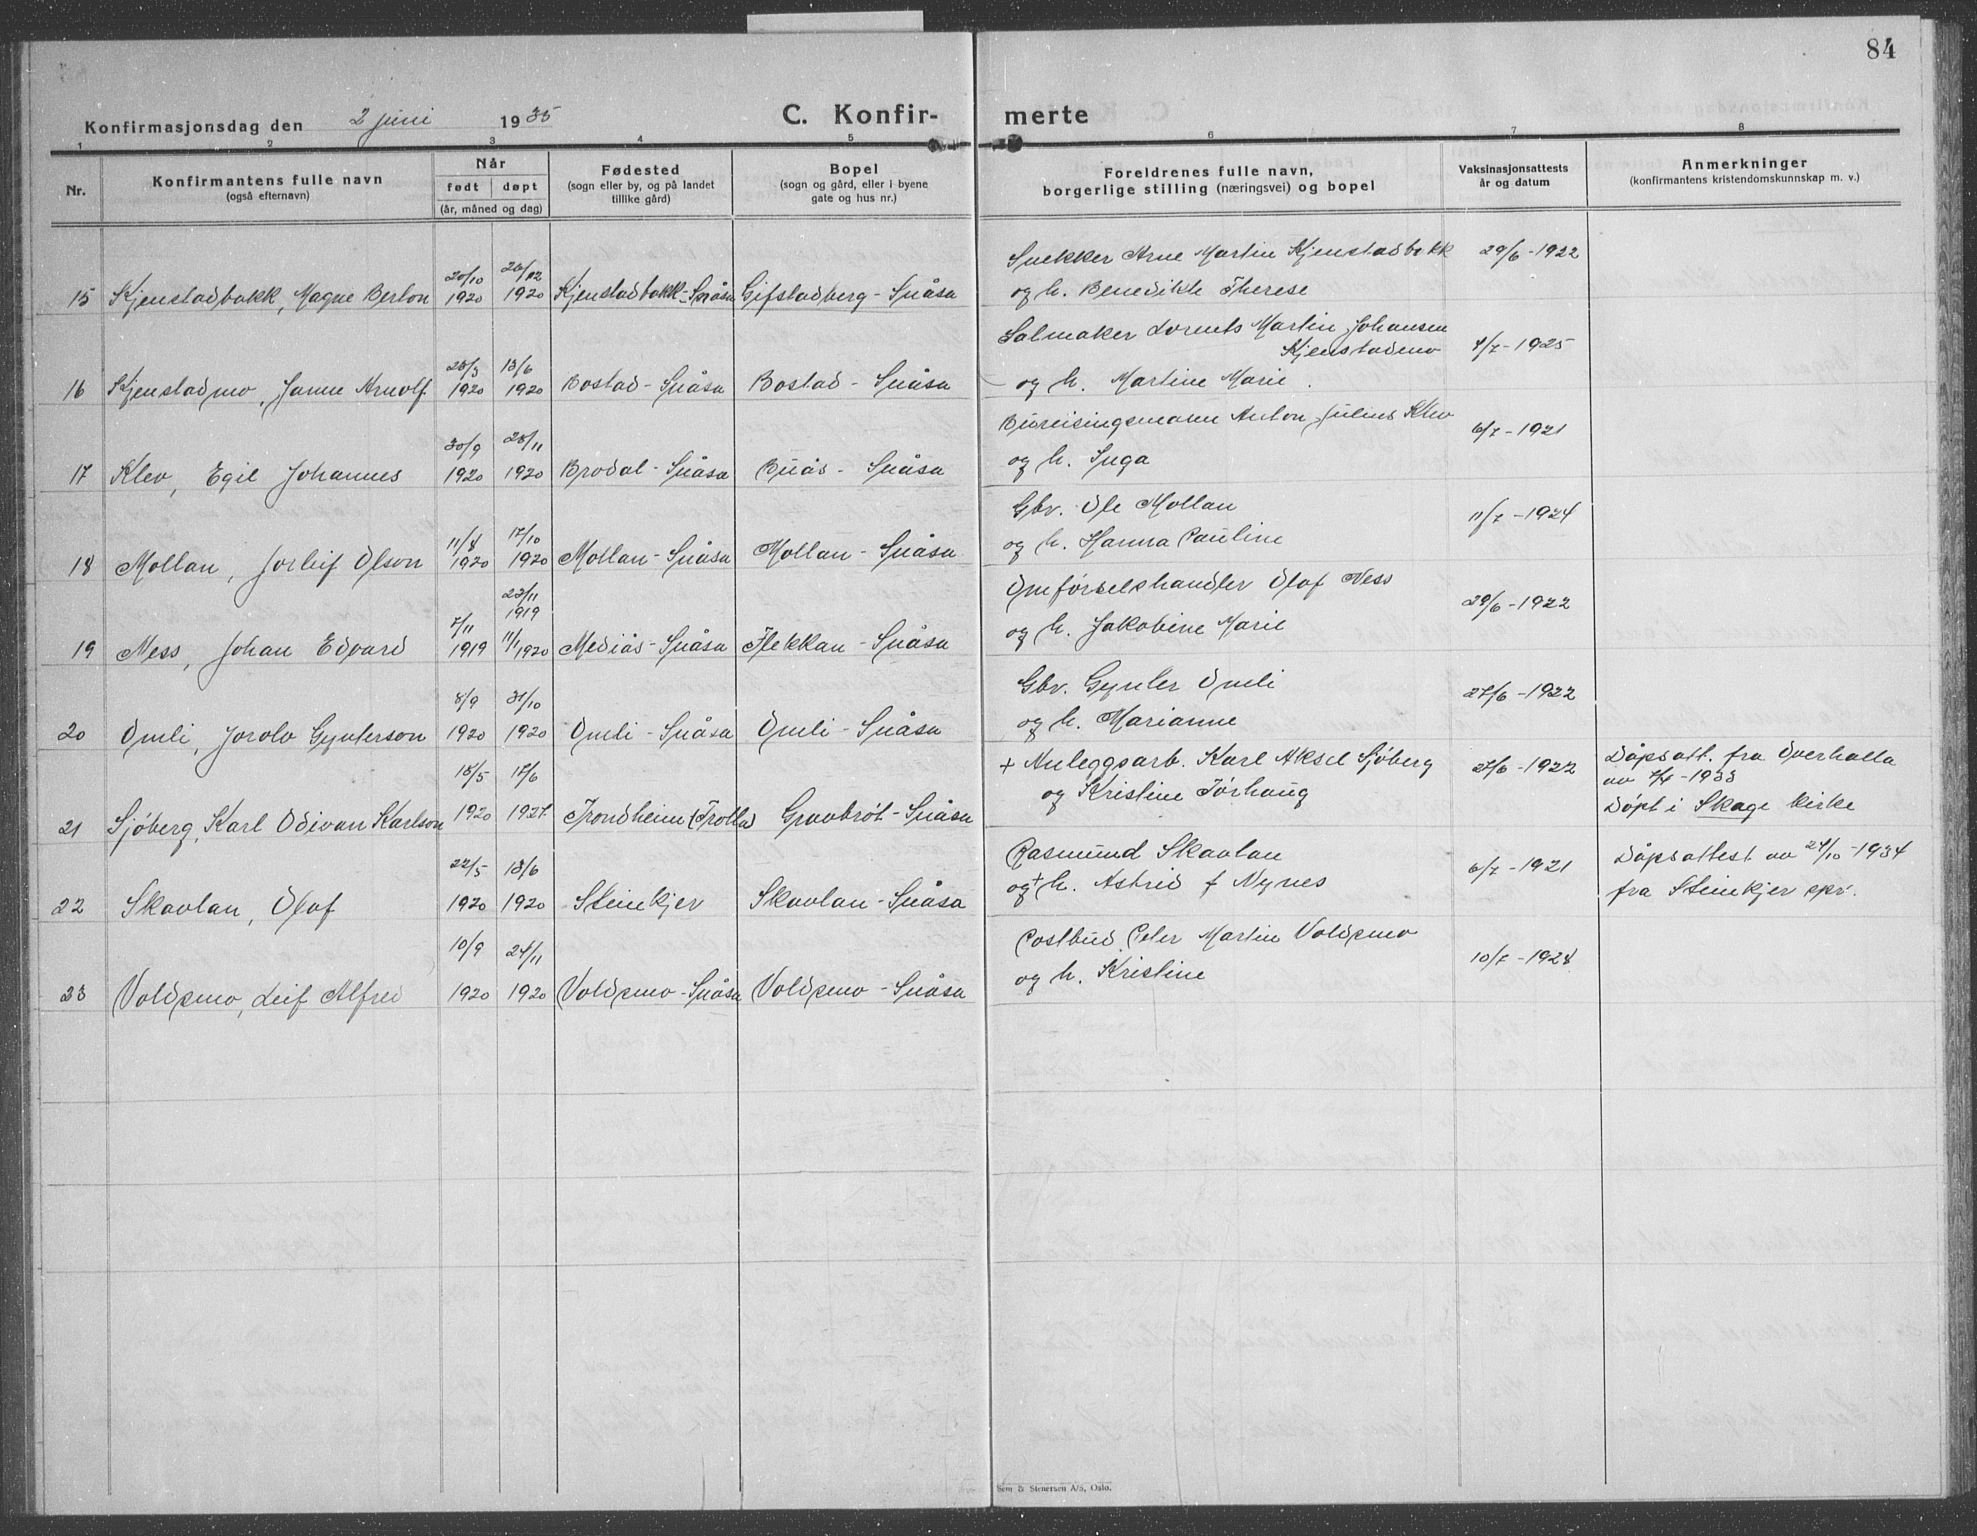 84
Konfirmasjonsdag den 2 juni 1935
C. Konfirmerte
1 2 3 4 5 6 7 8
Nr.
Konfirmantens fulle navn
(også efternavn)
Når
født døpt
(år, måned og dag)
Fødested
(sogn eller by, og på landet
tillike gård)
Bopel
(sogn og gård, eller i byene
gate og hus nr.)
Foreldrenes fulle navn,
borgerlige stilling (næringsvei) og bopel
Vaksinasjonsattests
år og datum
Anmerkninger
(konfirmantens kristendomskunnskap m. v.)
20/10 26/12 Snekker Arne Martin Kjenstadbakk 29/6 - 1922
15 Kjenstadbakk, Magne Berton 1920 1920 Kjenstadbakk - Snåsa Gifstadberg - Snåsa og h. Benedikte Therese
Salmaker Lornts Martin Johansen
Kjenstadmo 4/7 - 1925
28/3 13/6
16 Kjenstadmo, Janne Arnolf 1920 1920 Bostad - Snåsa Bostad - Snåsa og h. Martine Marie.
30/9 28/11 Bureisingsmann Anton Julius Klev 6/7 - 1921
17 Klev, Egil Johannes 1920 1920 Brodal - Snåsa Buås - Snåsa og h. Inga
11/8 17/10 Gbr. Ole Mollan 11/7 - 1924
18 Mollan, Jorleif Olson 1920 1920 Mollan - Snåsa Mollan - Snåsa og h. Hanna Pauline
23/11
1919 Omførselshandler Olaf Ness 29/6 - 1922
7/11
19 Ness, Johan Edvard 1919 11/1 1920 Mediås - Snåsa Flekkan - Snåsa og h. Jakobine Marie
8/9 31/10 Gbr. Gynter Omli 27/6 - 1922
20 Omli, Jorolv Gynterson 1920 1920 Omli - Snåsa Omli - Snåsa og h. Marianne
18/5 17/6 + Anleggsarb. Karl Aksel Sjøberg 27/6 - 1922 Dåpsatt. fra Overhalla
og Kristine Tørhaug av - 1933
21 Sjøberg, Karl Odivan Karlson 1920 1927. Trondheim (Trolla) Gravbrøt - Snåsa Døpt i Skage kirke
22/5 13/6 Rasmund Skavlan 6/7 - 1921 Dåpsattest av 24/10 - 1934
22 Skavlan, Olaf 1920 1920 Steinkjer Skavlan - Snåsa og + h. Astrid f Nynes fra Steinkjer spr.
10/9 24/11 Postbud Peter Martin Voldsmo 10/7 - 1924
23 Voldsmo, Leif Alfred 1920 1920 Voldsmo - Snåsa Voldsmo - Snåsa og h. Kristine
Sem & Stenersen A/S, Oslo.